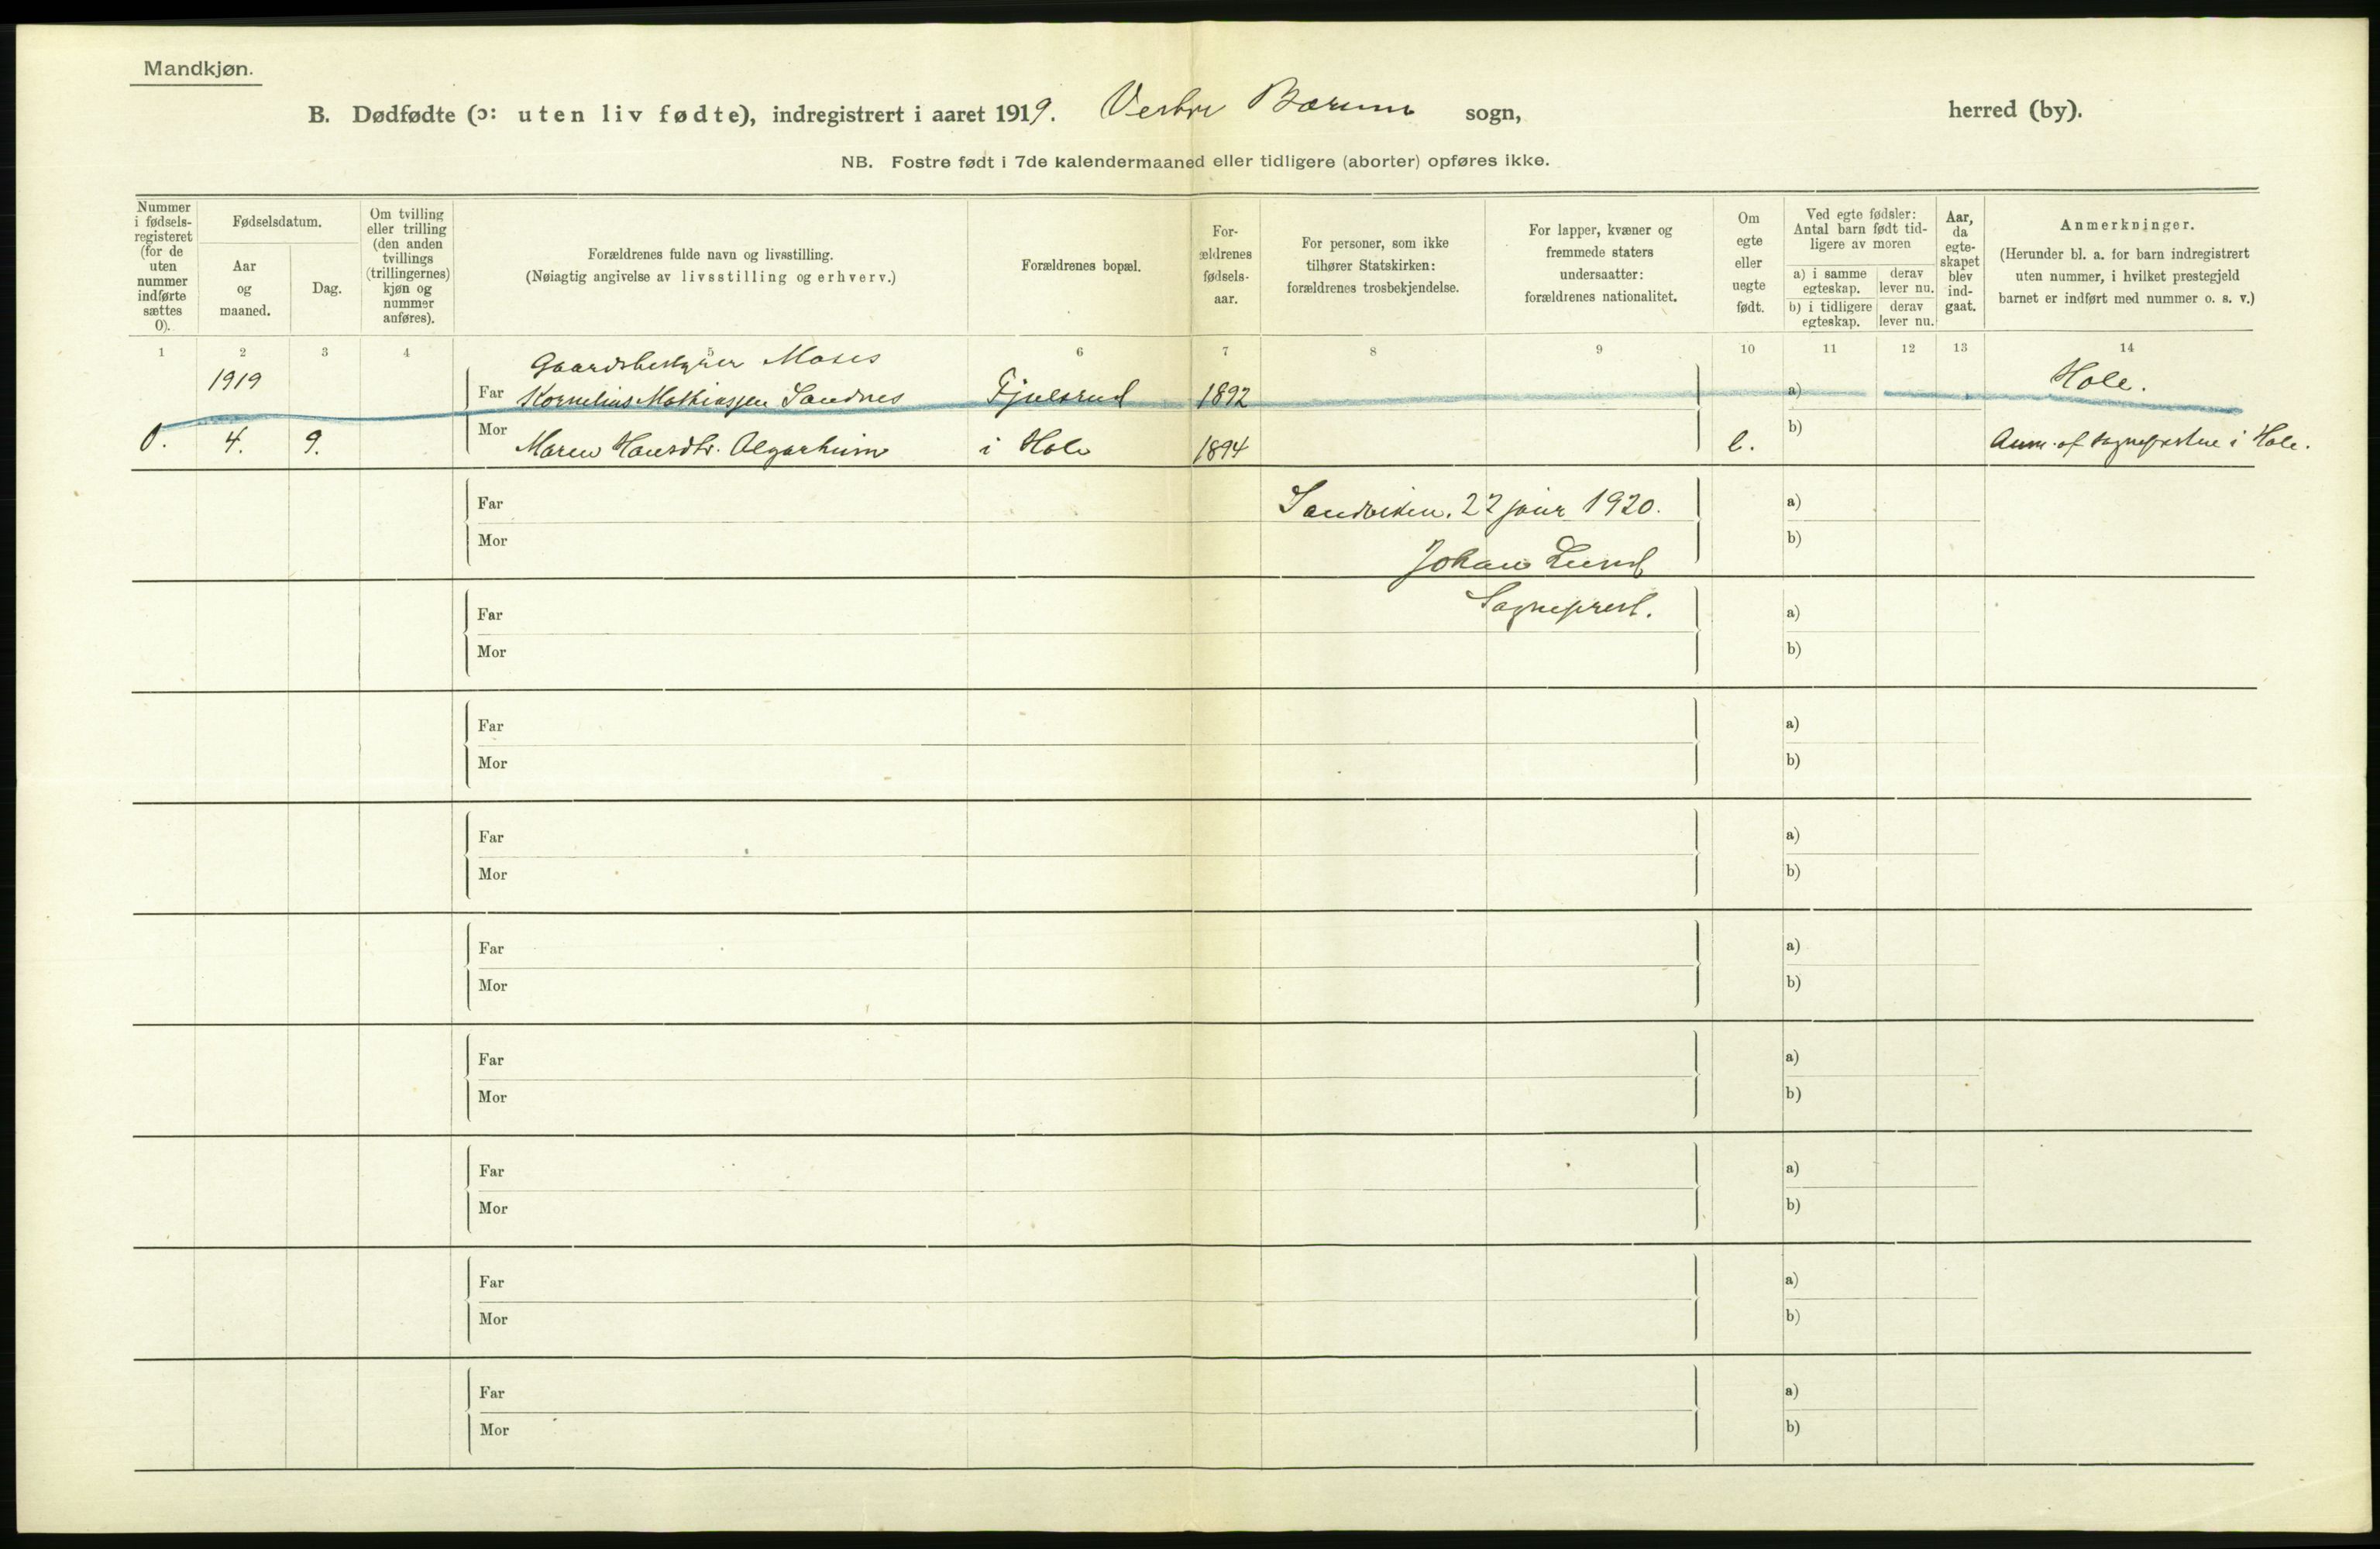 Mandkjøn.
B. Dødfødte (ɔ: uten liv fødte), indregistrert i aaret 1919. Vestre Bærum sogn, herred (by).
NB. Fostre født i 7de kalendermaaned eller tidligere (aborter) opføres ikke.
Nummer i fødsels-registeret (for de uten nummer indførte sættes 0).
Fødselsdatum.
Aar og maaned.
Dag.
Om tvilling eller trilling (den anden tvillings (trillingernes) kjøn og nummer anføres).
Forældrenes fulde navn og livsstilling.
(Nøiagtig angivelse av livsstilling og erhverv.)
Forældrenes bopæl.
For-ældrenes fødsels-aar.
For personer, som ikke tilhører Statskirken: forældrenes trosbekjendelse.
For lapper, kvæner og fremmede staters undersaatter: forældrenes nationalitet.
Om egte eller uegte født.
Ved egte fødsler: Antal barn født tid-ligere av moren
a) i samme egteskap.
derav lever nu.
b) i tidligere egteskap.
derav lever nu.
Aar, da egte-skapet blev ind-gaat.
Anmerkninger.
(Herunder bl. a. for barn indregistrert uten nummer, i hvilket prestegjeld barnet er indført med nummer o. s. v.)
1 2 3 4 5 6 7 8 9 10 11 12 13 14
Gaardsbestyrer Moses
1919 Far Kornelius Mathiassen Sandnes Fjulsrud 1892 a) Hole.
0. 4. 9. Mor Maren Hansdtr. Algarheim i Hole 1894 e. b) Anm. af sogneprsten i Hole.
Far Sandviken. 22 janr 1920. a)
Mor Johan Lund b)
Far Sogneprest. a)
Mor b)
Far a)
Mor b)
Far a)
Mor b)
Far a)
Mor b)
Far a)
Mor b)
Far a)
Mor b)
Far a)
Mor b)
Far a)
Mor b)